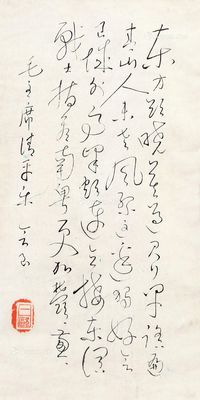 东方欲晓莫道君行早踏遍
青山人未老风景这边独好会
昌城外高峰颠连直接东溟
战士指看南粤更加郁々葱々
毛主席清平乐 会昌